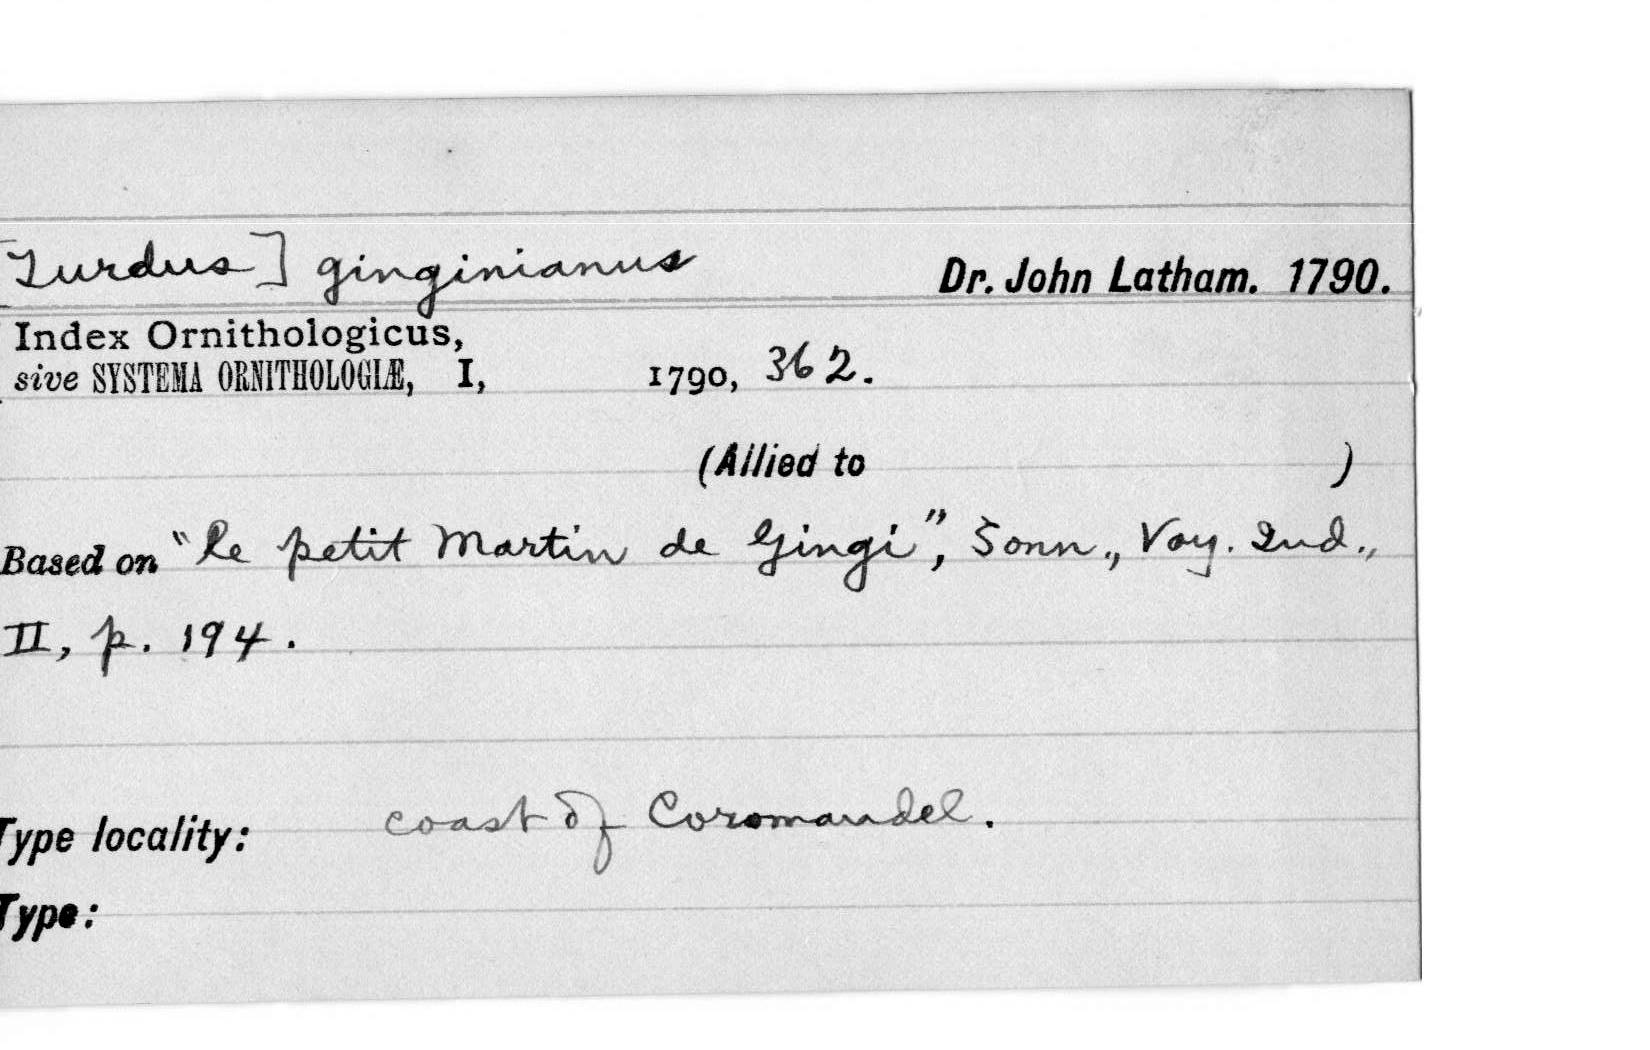 [Turdus] ginginianus Dr. John Latham. 1790.
Index Ornithologicus,
sive SYSTEMA ORNITHOLOGIÆ, I, 1790, 362.
(Allied to )
Based on "Le petit Martin de Gingi", Sonn., Voy. Ind.,
II, p. 194.
Type locality: coast of Coromandel.
Type: